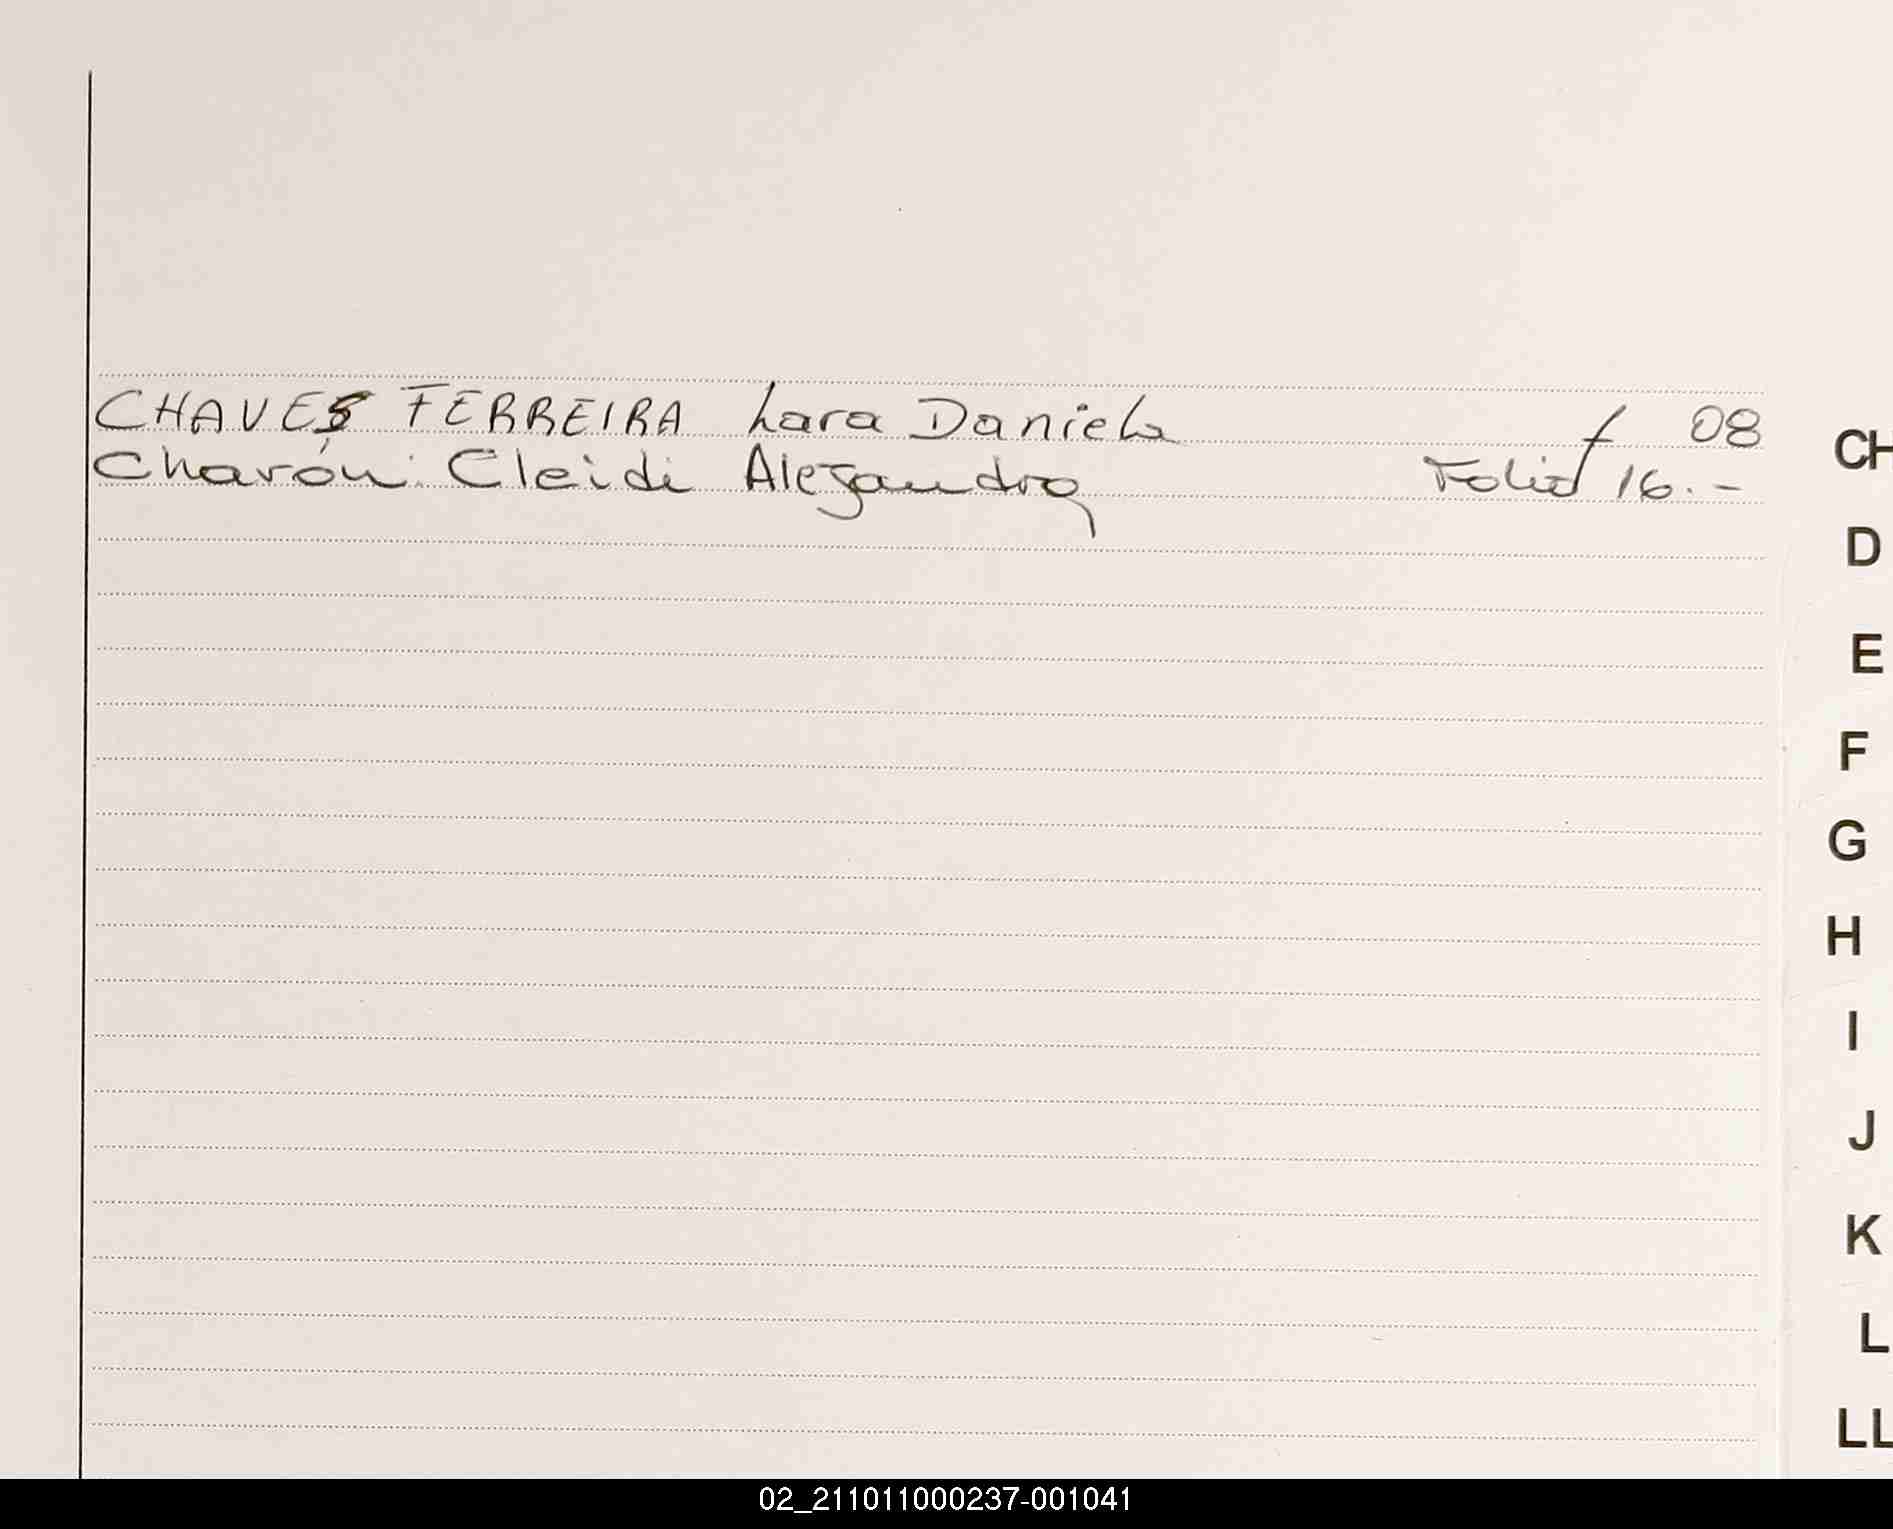 CHAVES FERREIRA Lara Daniela f 08
CH
Charón Cleidi Alejandra Folio 16.-
D
E
F
G
H
I
J
K
L
LL
02_211011000237-001041